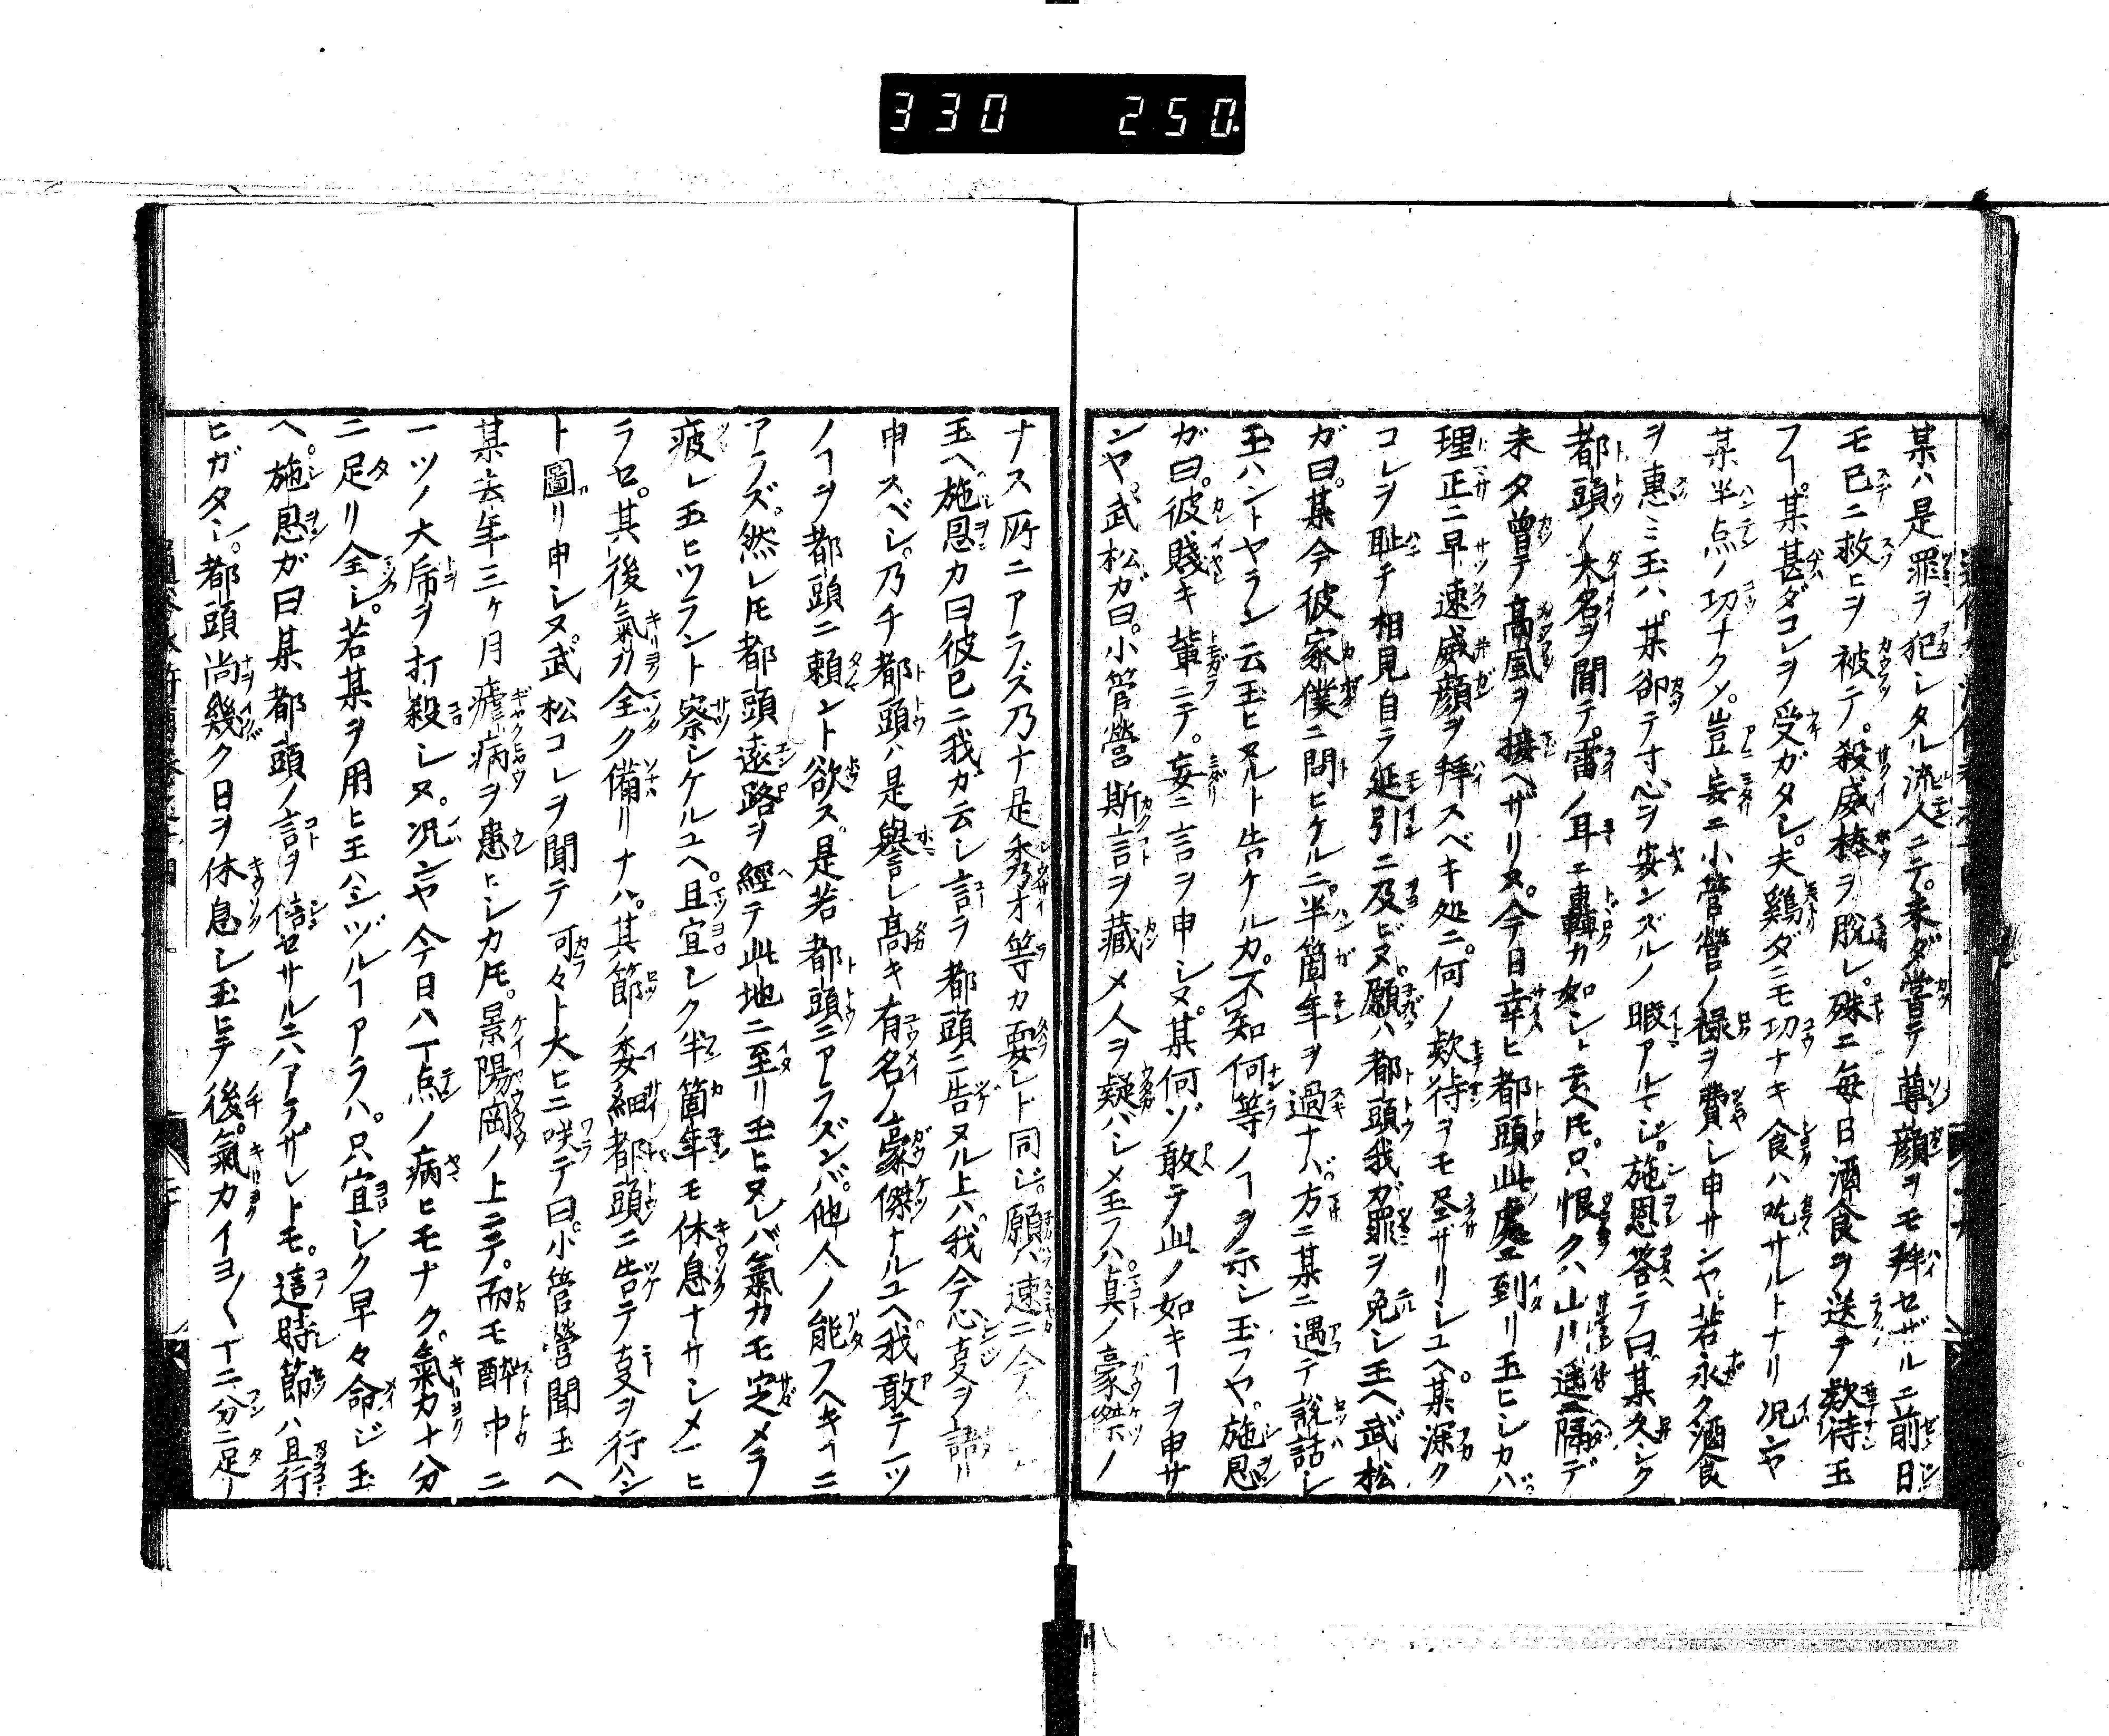 330 250.
某ハ是罪ヲ犯シタル流人ニテ。未ダ嘗テ尊顔ヲモ拜セザルニ前日
モ已ニ救ヒヲ被テ。殺威棒ヲ脱レ。殊ニ毎日酒食ヲ送テ欵待玉
フヿ。某甚ダコレヲ受ガタシ。夫鷄ダニモ功ナキ食ハ吃サルトナリ况ンヤ
某半点ノ功ナクメ。豈妄ニ小管營ノ禄ヲ費シ申サンヤ若永ク酒食
ヲ惠ミ玉ハ。某卻テ寸心ヲ安ンズルノ暇アルマジ。施恩答テ曰某久シク
都頭ノ大名ヲ聞テ。雷ノ耳ニ轟カ如シト云ヘ𪜈。只恨クハ山川遥ニ隔デ
未タ曾テ髙風ヲ接ヘザリヌ。今日幸ヒ都頭此處ニ到リ玉ヒシカバ。
理正ニ早速威顔ヲ拜スベキ処ニ。何ノ欵待ヲモ尽サリシユヘ。某深ク
コレヲ耻チ相見自ラ延引ニ及ビヌ。願ハ都頭我ガ罪ヲ免シ玉ヘ武松
ガ曰。某今彼家僕ニ問ヒケルニ。半箇年ヲ過ナハ。方ニ某ニ遇テ說話シ
玉ハントヤラン云玉ヒヌルト告ケルカ。不知何等ノヿヲ示シ玉フヤ。施恩
ガ曰。彼賤キ輩ニテ。妄ニ言ヲ申シヌ。某何ゾ敢テ此ノ如キヿヲ申サ
ンヤ。武松ガ曰。小管營斯言ヲ藏メ人ヲ疑ハシメ玉フハ。真ノ豪傑ノ
ナス所ニアラズ乃ナ是秀才等カ耍レト同ジ。願ハ速ニ今
玉ヘ施恩カ曰彼已ニ我カ云シ言ラ都頭ニ告ヌル上ハ。我今心支ヲ語リ
申スベシ。乃チ都頭ハ是輿レ髙キ有名ノ豪傑ナルユヘ。我敢テ一ツ
ノヿヲ都頭ニ頼ント欲ス。是若都頭ニアラズンバ。他人ノ能フヘキヿニ
アラズ。然レ𪜈都頭遠路ヲ經テ此地ニ至リ玉ヒヌレバ氣力モ定メラ
疲レ玉ヒツラント察シケルユヘ。且宜シク半箇年モ休息ナサシメ一ヒ
ラセ。其後氣力全ク備リナハ。其節委細都頭ニ告テ支ヲ行ハン
ト圖リ申シヌ武松コレヲ聞テ可々ト大ヒニ咲テ曰。小管營聞玉ヘ
某去年三ヶ月瘧病ヲ患ヒシカ𪜈。景陽岡ノ上ニテ。而モ酔中ニ
一ツノ大乕ヲ打殺シヌ。况ンヤ今日ハ丁点ノ病ヒモナク。氣力十分
ニ足リ全シ。若某ヲ用ヒ玉ハンヅルヿアラハ。只宜シク早々命ジ玉
ヘ。施恩ガ曰某都頭ノ言ヲ信セサルニハアラザレトモ。這時節ハ且行
ヒガタシ。都頭尚幾ク日ヲ休息シ玉ヒテ後氣力イヨ〱丁二分ニ足リ